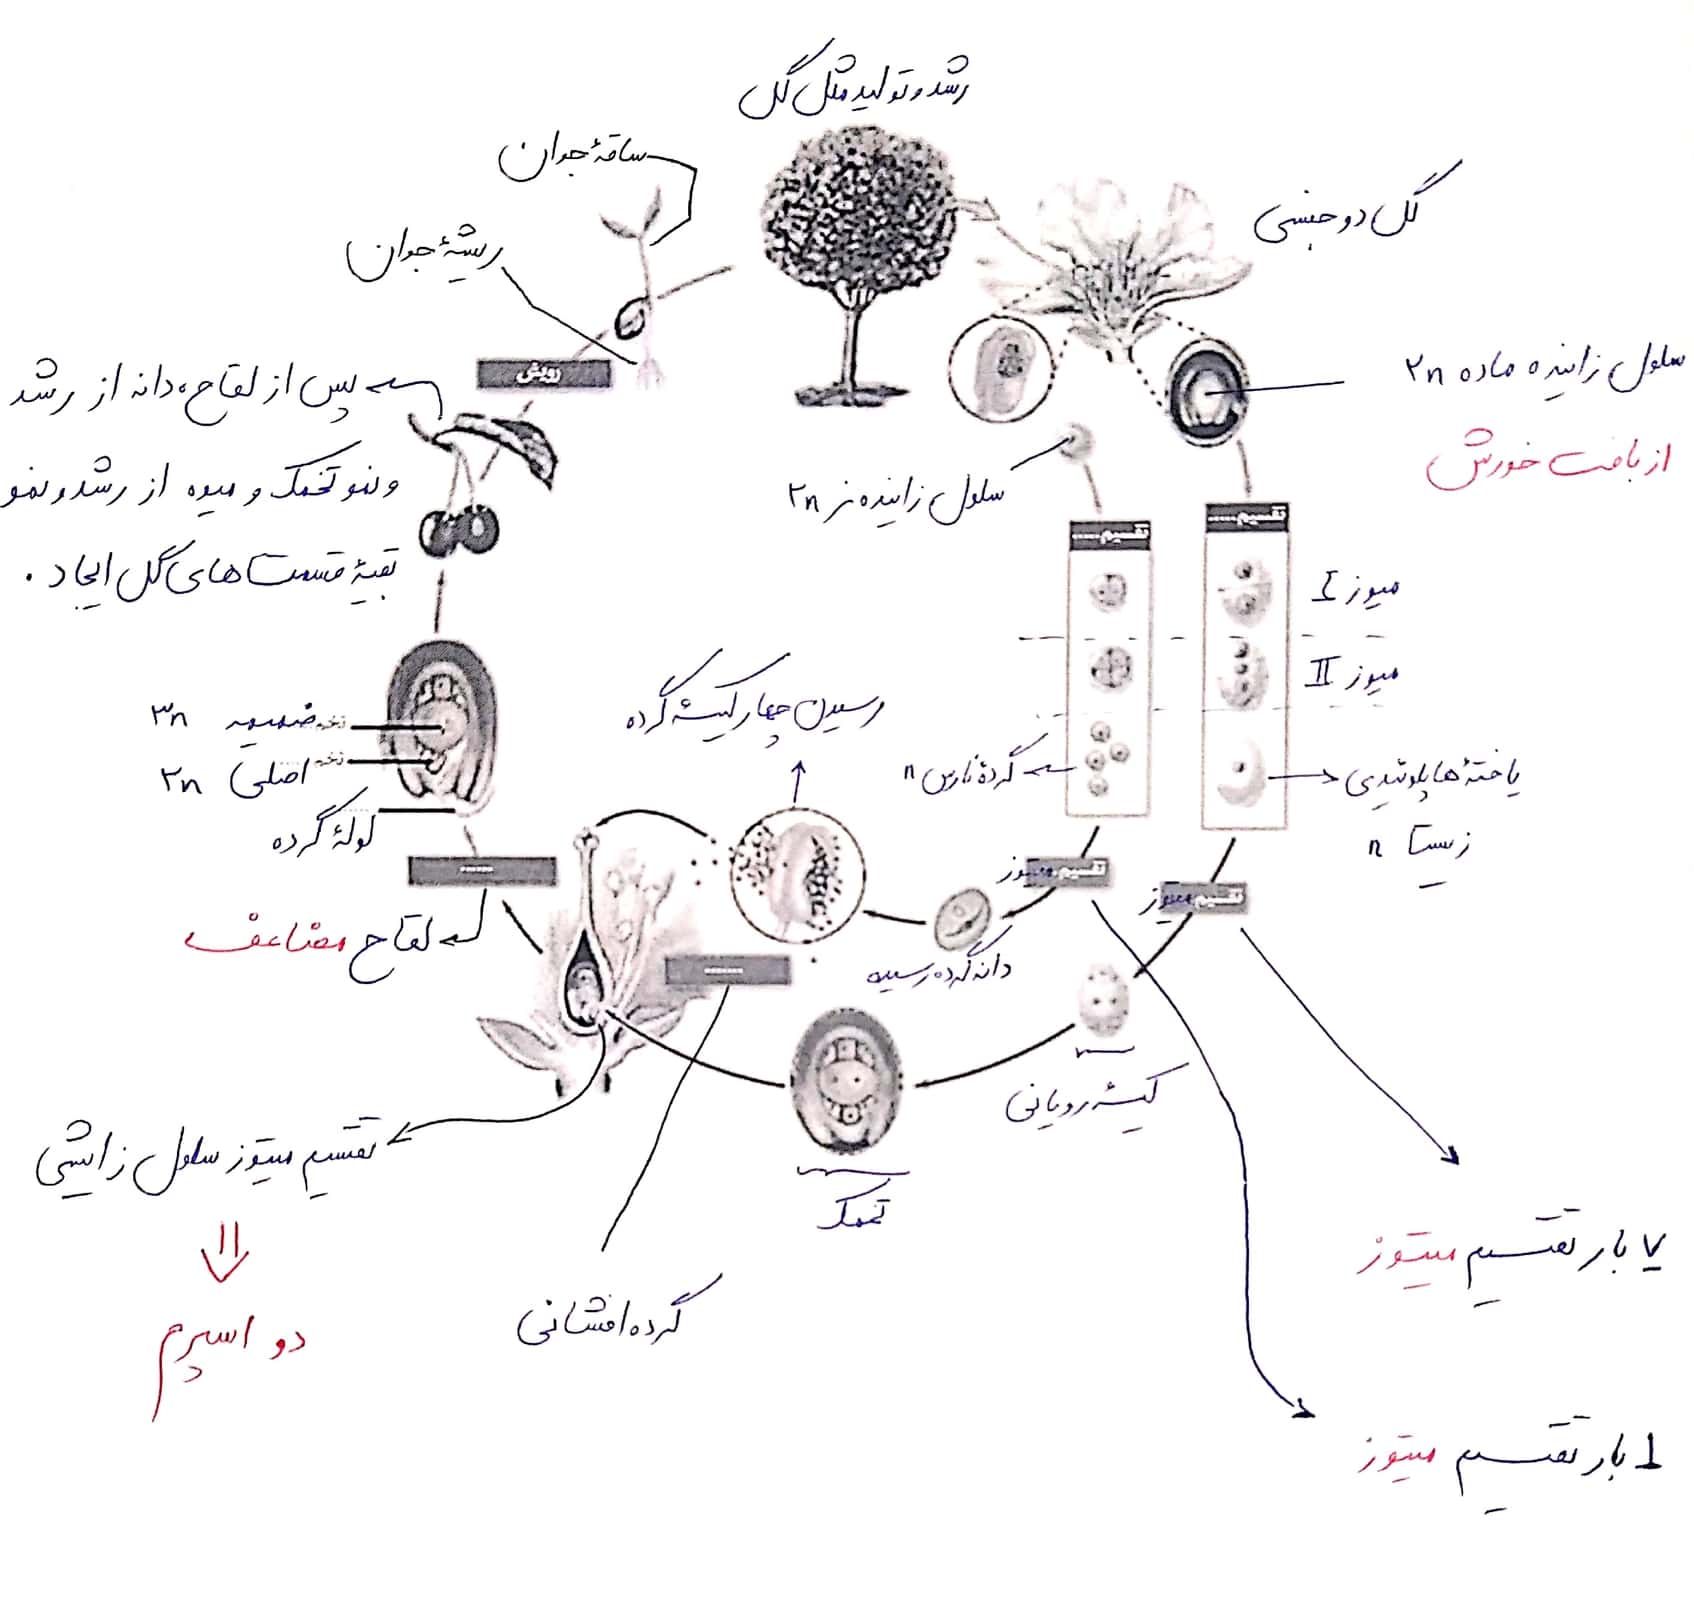 رشد و تولید مثل گل
ساقهٔ جوان
گل دو جنسی
ریشهٔ جوان
رویش
سلول زاینده ماده ۲n
از بافت خورش
پس از لقاح، دانه از رشد
و نمو تخمک و میوه از رشد و نمو
بقیهٔ قسمت های گل ایجاد.
سلول زاینده نر ۲n
تقسیم......
تقسیم......
میوز I
میوز II
رسیدن چهار کیسهٔ گرده
تخم ضمیمه ۳n
تخم اصلی ۲n
لولهٔ گرده
گردهٔ نارس n
یاختهٔ هاپلوئیدی
زیستا n
......
تقسیم میتوز
تقسیم میتوز
لقاح مضاعف
دانه گرده رسیده
.......
کیسه رویانی
تقسیم میتوز سلول زایشی
تخمک
دو اسپرم
گرده افشانی
۷ بار تقسیم میتوز
۱ بار تقسیم میتوز